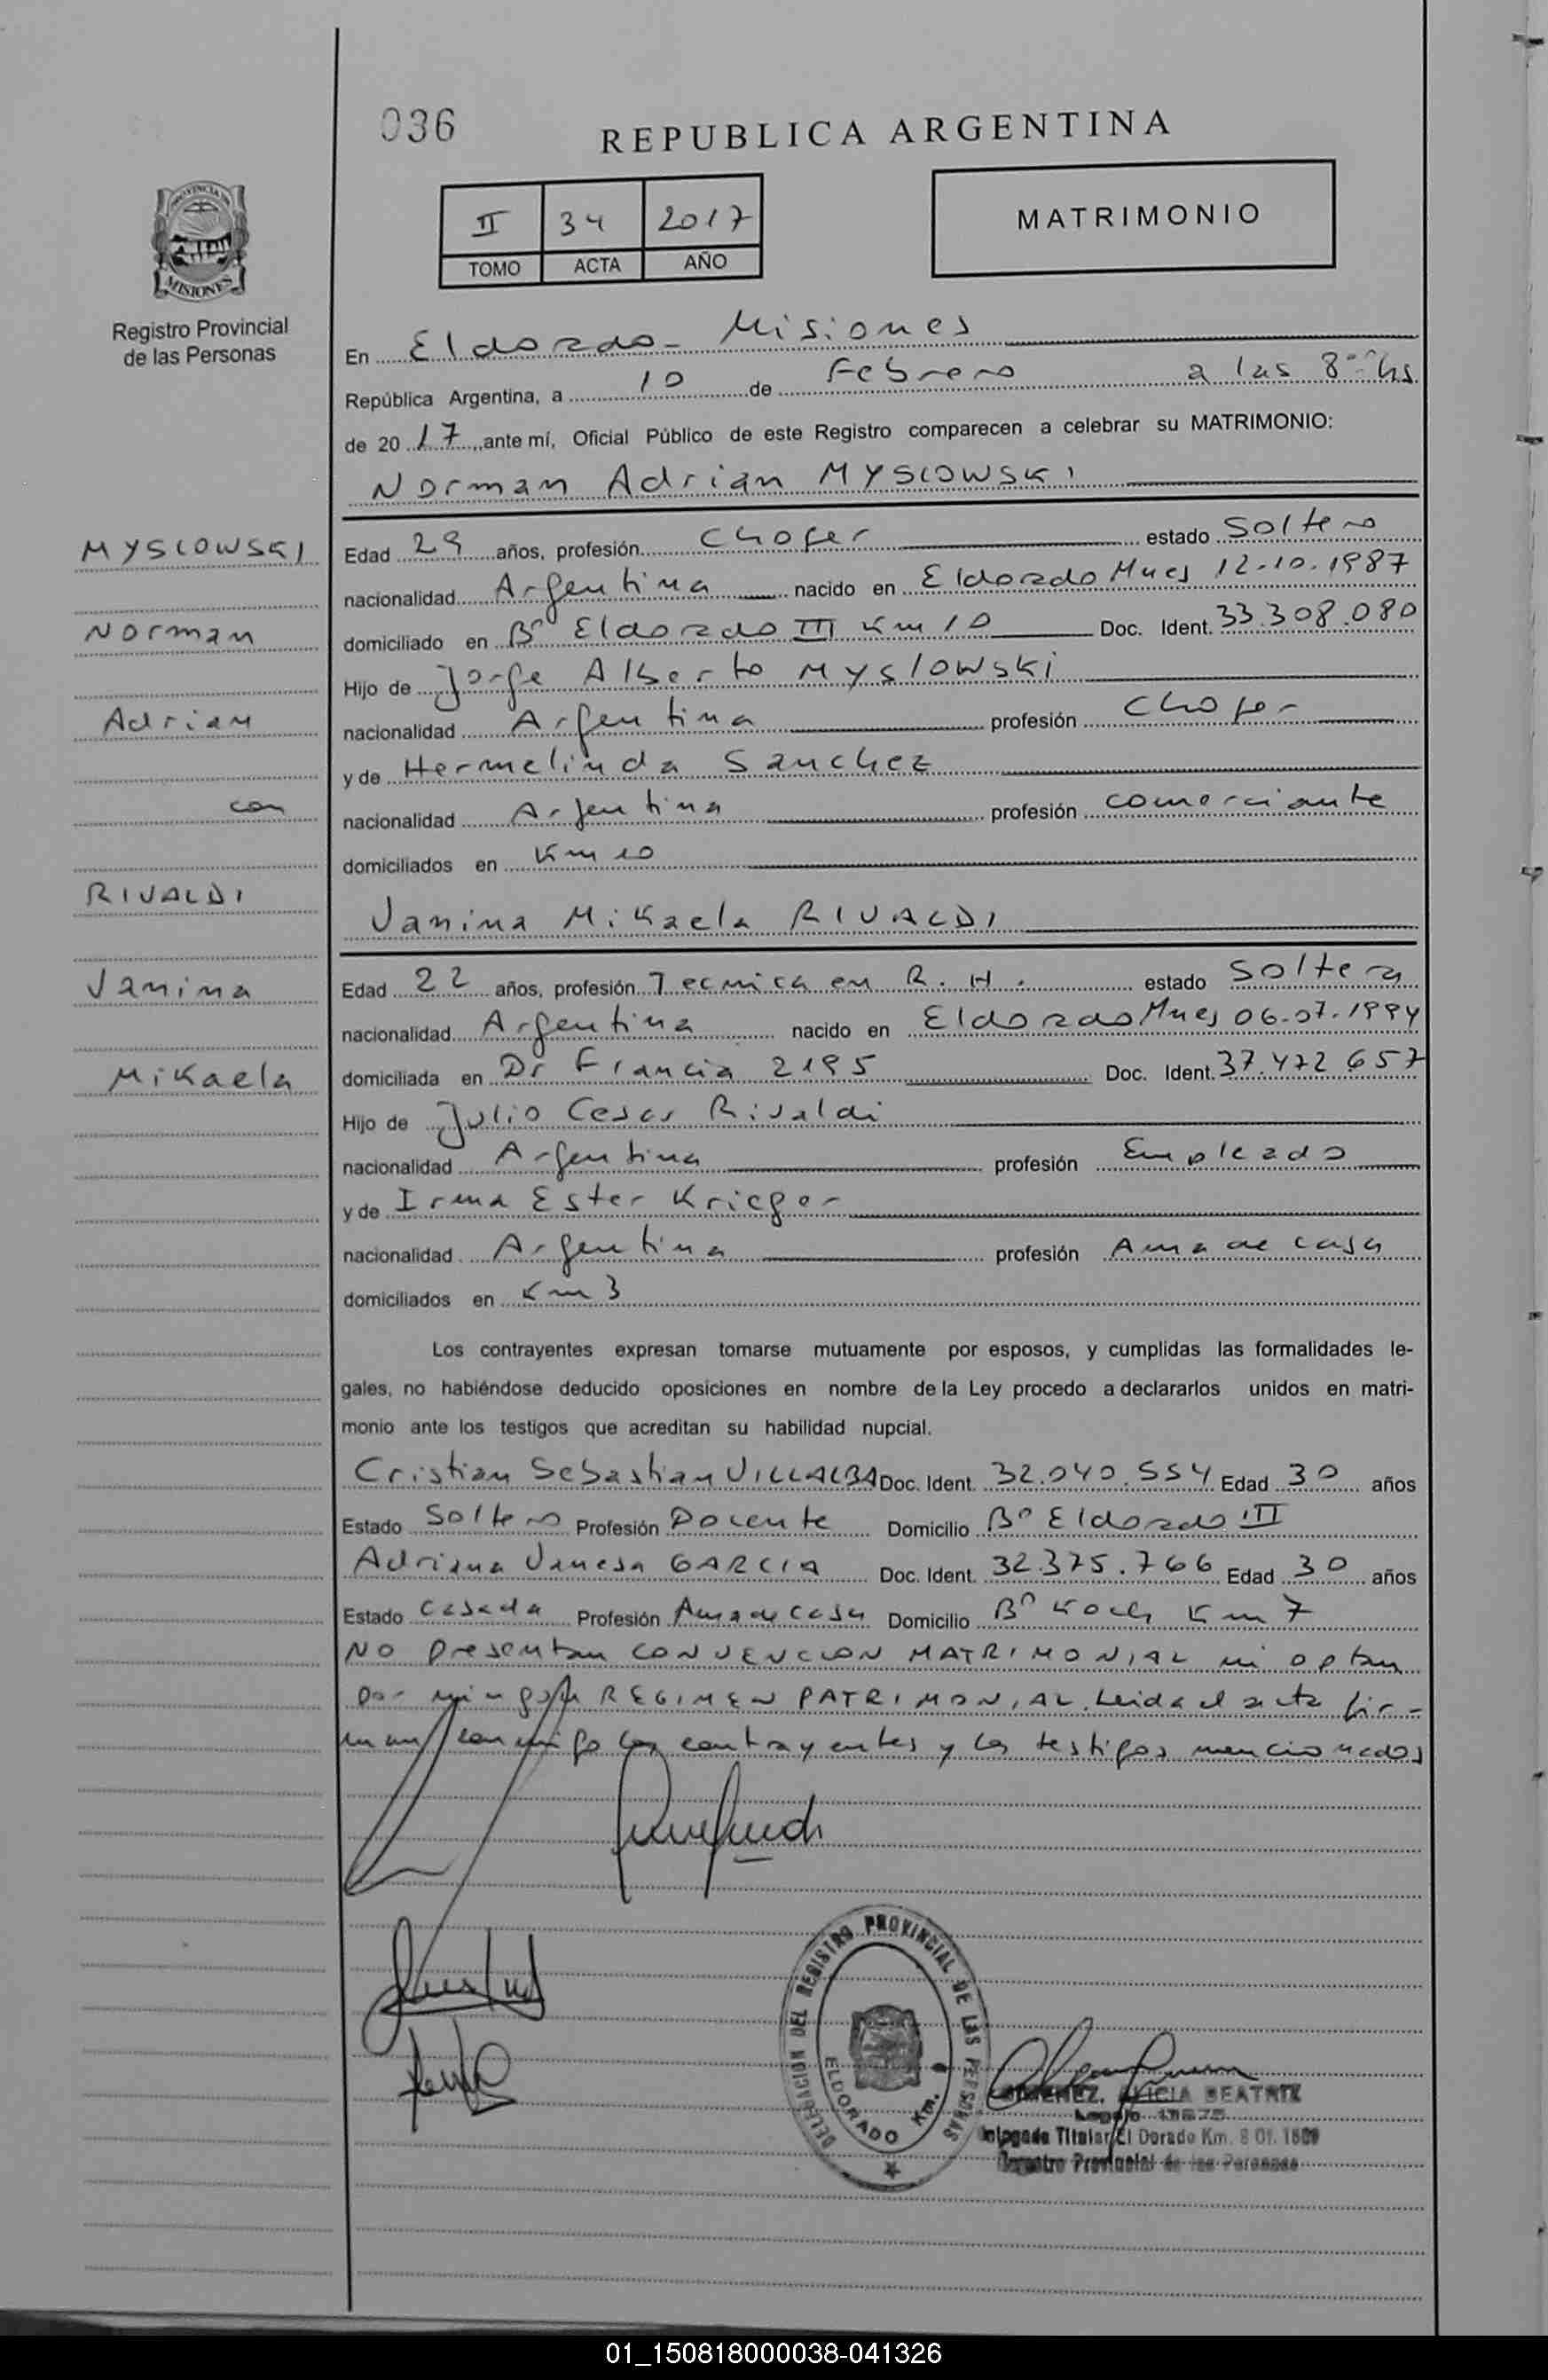 036
REPUBLICA ARGENTINA
II 34 2017
TOMO ACTA AÑO
MATRIMONIO
PROVINCIA DE
MISIONES
Registro Provincial
de las Personas
En Eldorado - Misiones
República Argentina, a 10 de Febrero a las 8 hs
de 20 17 ante mí, Oficial Público de este Registro comparecen a celebrar su MATRIMONIO:
Norman Adrian MYSLOWSKI
MYSLOWSKI
Norman
Adrian
con
RIVALDI
Janina
Mikaela
Edad 29 años, profesión Chofer estado Soltero
nacionalidad Argentina nacido en Eldorado Mnes 12.10.1987
domiciliado en Bº Eldorado III Km 10 Doc. Ident. 33.308.080
Hijo de Jorge Alberto Myslowski
nacionalidad Argentina profesión Chofer
y de Hermelinda Sanchez
nacionalidad Argentina profesión comerciante
domiciliados en Km 10
Janina Mikaela RIVALDI
Edad 22 años, profesión Tecnica en R. H. estado Soltera
nacionalidad Argentina nacido en Eldorado Mnes 06.07.1994
domiciliada en Dr Francia 2195 Doc. Ident. 37.472.657
Hijo de Julio Cesar Rivaldi
nacionalidad Argentina profesión Empleado
y de Irma Ester Krieger
nacionalidad Argentina profesión Ama de casa
domiciliados en Km 3
Los contrayentes expresan tomarse mutuamente por esposos, y cumplidas las formalidades le-
gales, no habiéndose deducido oposiciones en nombre de la Ley procedo a declararlos unidos en matri-
monio ante los testigos que acreditan su habilidad nupcial.
Cristian Sebastian VILLALBA Doc. Ident. 32.040.554 Edad 30 años
Estado Soltero Profesión Docente Domicilio Bº Eldorado III
Adriana Vanesa GARCIA Doc. Ident. 32.375.766 Edad 30 años
Estado Casada Profesión Ama de casa Domicilio Bº Koch Km 7
NO presentan CONVENCION MATRIMONIAL ni optan
por ningún REGIMEN PATRIMONIAL. Leida el acta fir-
man conmigo los contrayentes y los testigos mencionados
DELEGACION DEL REGISTRO PROVINCIAL DE LAS PERSONAS
ELDORADO Km.
GIMENEZ, ALICIA BEATRIZ
Legajo
Delegada Titular El Dorado Km. 8 Of. 1609
Registro Provincial de las Personas
01_150818000038-041326